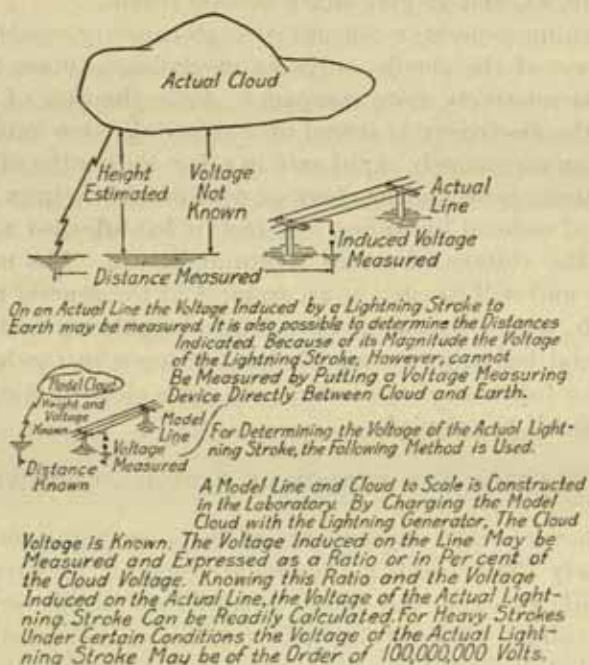 Actual Cloud
Height
Estimated
Voltage
Not
Known
Actual
Line
Induced Voltage
Measured
Distance Measured
On an Actual Line the Voltage Induced by a Lightning Stroke to
Earth may be measured. It is also possible to determine the Distances
Indicated. Because of its Magnitude the Voltage
of the Lightning Stroke, However, cannot
Be Measured by Putting a Voltage Measuring
Device Directly Between Cloud and Earth.
Model Cloud
Height and
Voltage
Known
Model
Line
Voltage
Measured
Distance
Known
For Determining the Voltage of the Actual Light-
ning Stroke, the Following Method is Used.
A Model Line and Cloud to Scale is Constructed
in the Laboratory. By Charging the Model
Cloud with the Lightning Generator, The Cloud
Voltage is Known. The Voltage Induced on the Line May be
Measured and Expressed as a Ratio or in Per cent of
the Cloud Voltage. Knowing this Ratio and the Voltage
Induced on the Actual Line, the Voltage of the Actual Light-
ning Stroke Can be Readily Calculated. For Heavy Strokes
Under Certain Conditions the Voltage of the Actual Light-
ning Stroke May be of the Order of 100,000,000 Volts.